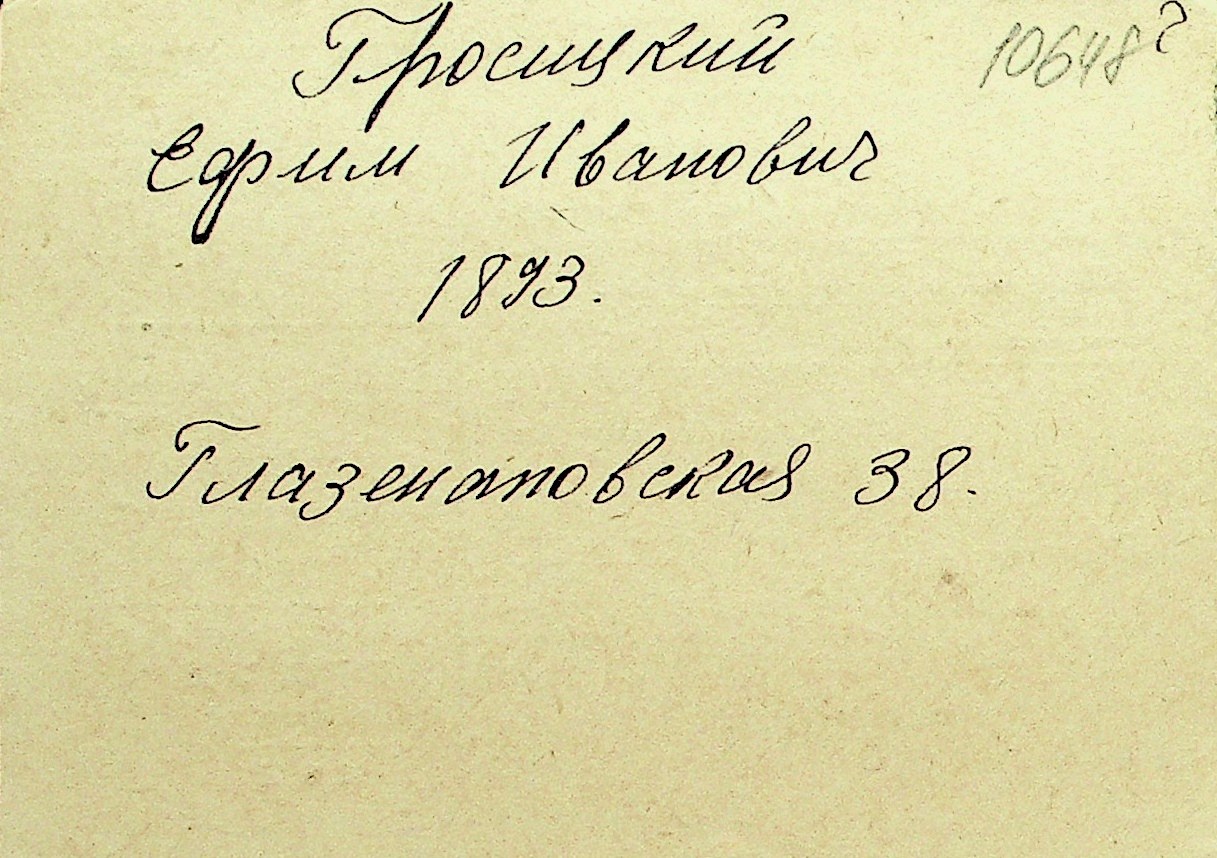 Гросицкий 10648 г
Ефим Иванович
1893.
Глазенаповская 38.